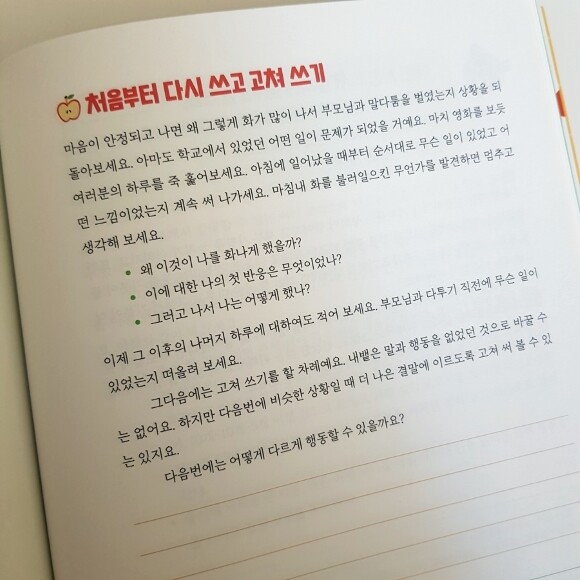 처음부터 다시 쓰고 고쳐 쓰기
마음이 안정되고 나면 왜 그렇게 화가 많이 나서 부모님과 말다툼을 벌였는지 상황을 되
돌아보세요. 아마도 학교에서 있었던 어떤 일이 문제가 되었을 거예요. 마치 영화를 보듯
여러분의 하루를 죽 훑어보세요. 아침에 일어났을 때부터 순서대로 무슨 일이 있었고 어
떤 느낌이었는지 계속 써 나가세요. 마침내 화를 불러일으킨 무언가를 발견하면 멈추고
생각해 보세요.
• 왜 이것이 나를 화나게 했을까?
• 이에 대한 나의 첫 반응은 무엇이었나?
• 그러고 나서 나는 어떻게 했나?
이제 그 이후의 나머지 하루에 대하여도 적어 보세요. 부모님과 다투기 직전에 무슨 일이
있었는지 떠올려 보세요.
그다음에는 고쳐 쓰기를 할 차례예요. 내뱉은 말과 행동을 없었던 것으로 바꿀 수
는 없어요. 하지만 다음번에 비슷한 상황일 때 더 나은 결말에 이르도록 고쳐 써 볼 수 있
는 있지요.
다음번에는 어떻게 다르게 행동할 수 있을까요?